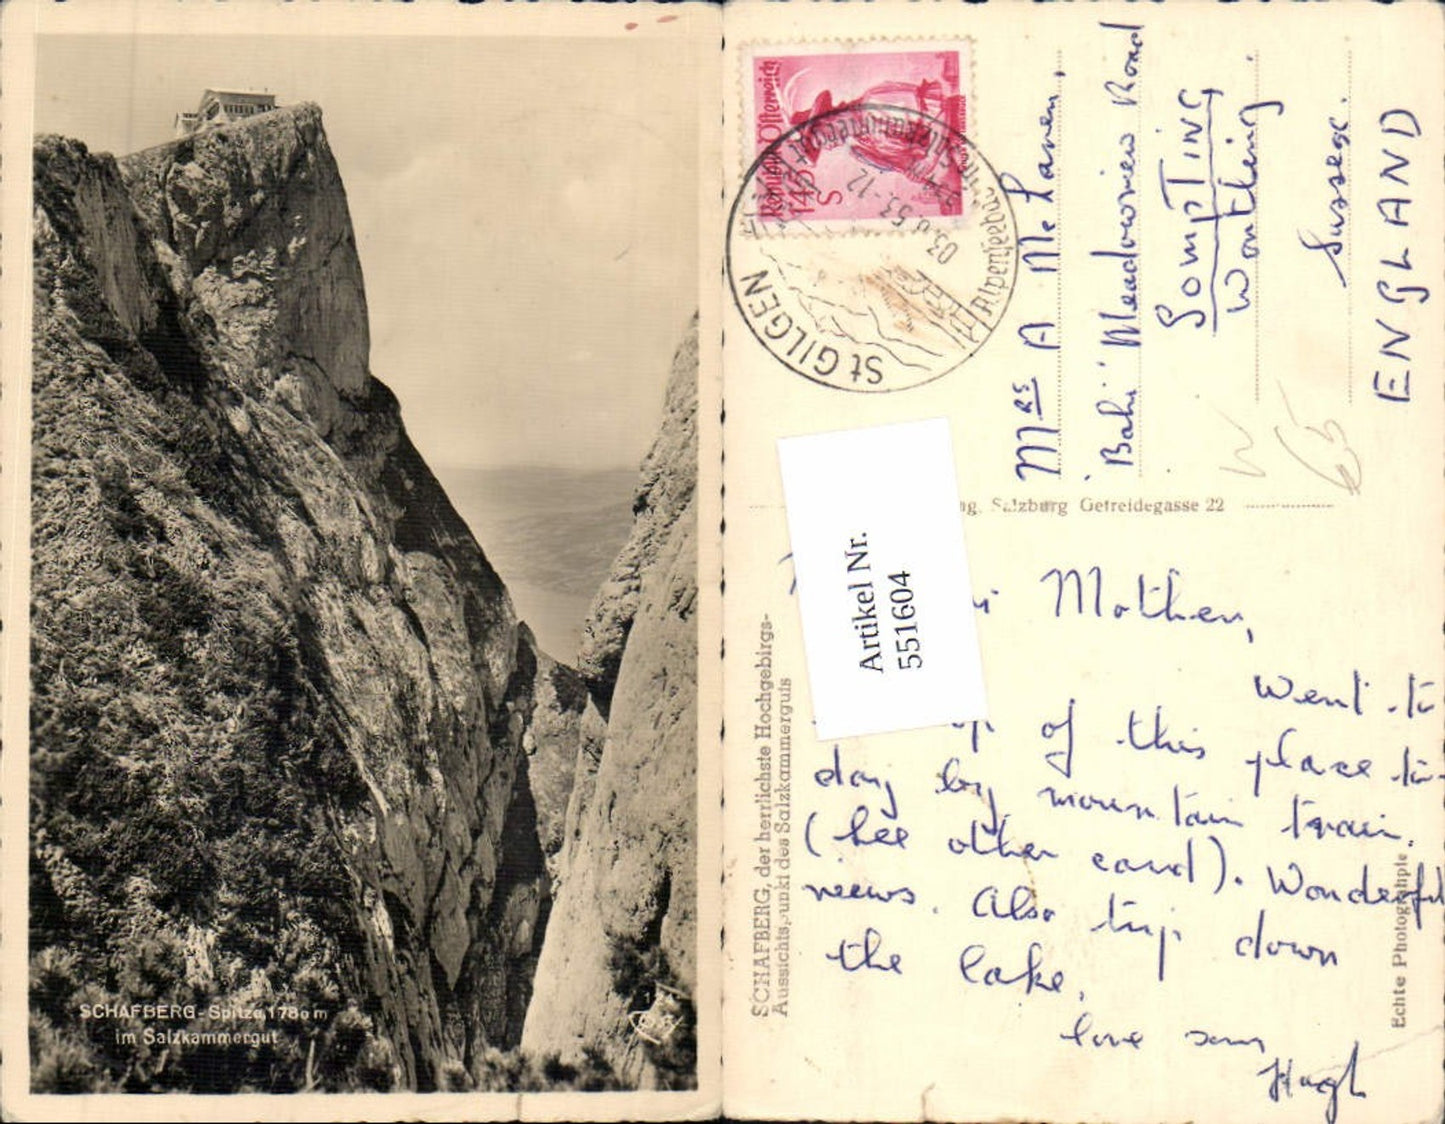 SCHAFBERG-Spitze 1780 m
im Salzkammergut
Republik Österreich
1.45 S
St GILGEN
03.6.53.-12
Mrs A McLaren,
'Bahi' Meadowview Road
SOMPTING
Worthing.
Sussex.
ENGLAND
W
Salzburg Getreidegasse 22
Artikel Nr.
551604
SCHAFBERG, der herrlichste Hochgebirgs-
Aussichtspunkt des Salzkammerguts
Echte Photographie
Mother,
Went to
of this place to-
day by mountain train.
(See other card). Wonderful
views. Also trip down
the lake.
love som
Hugh